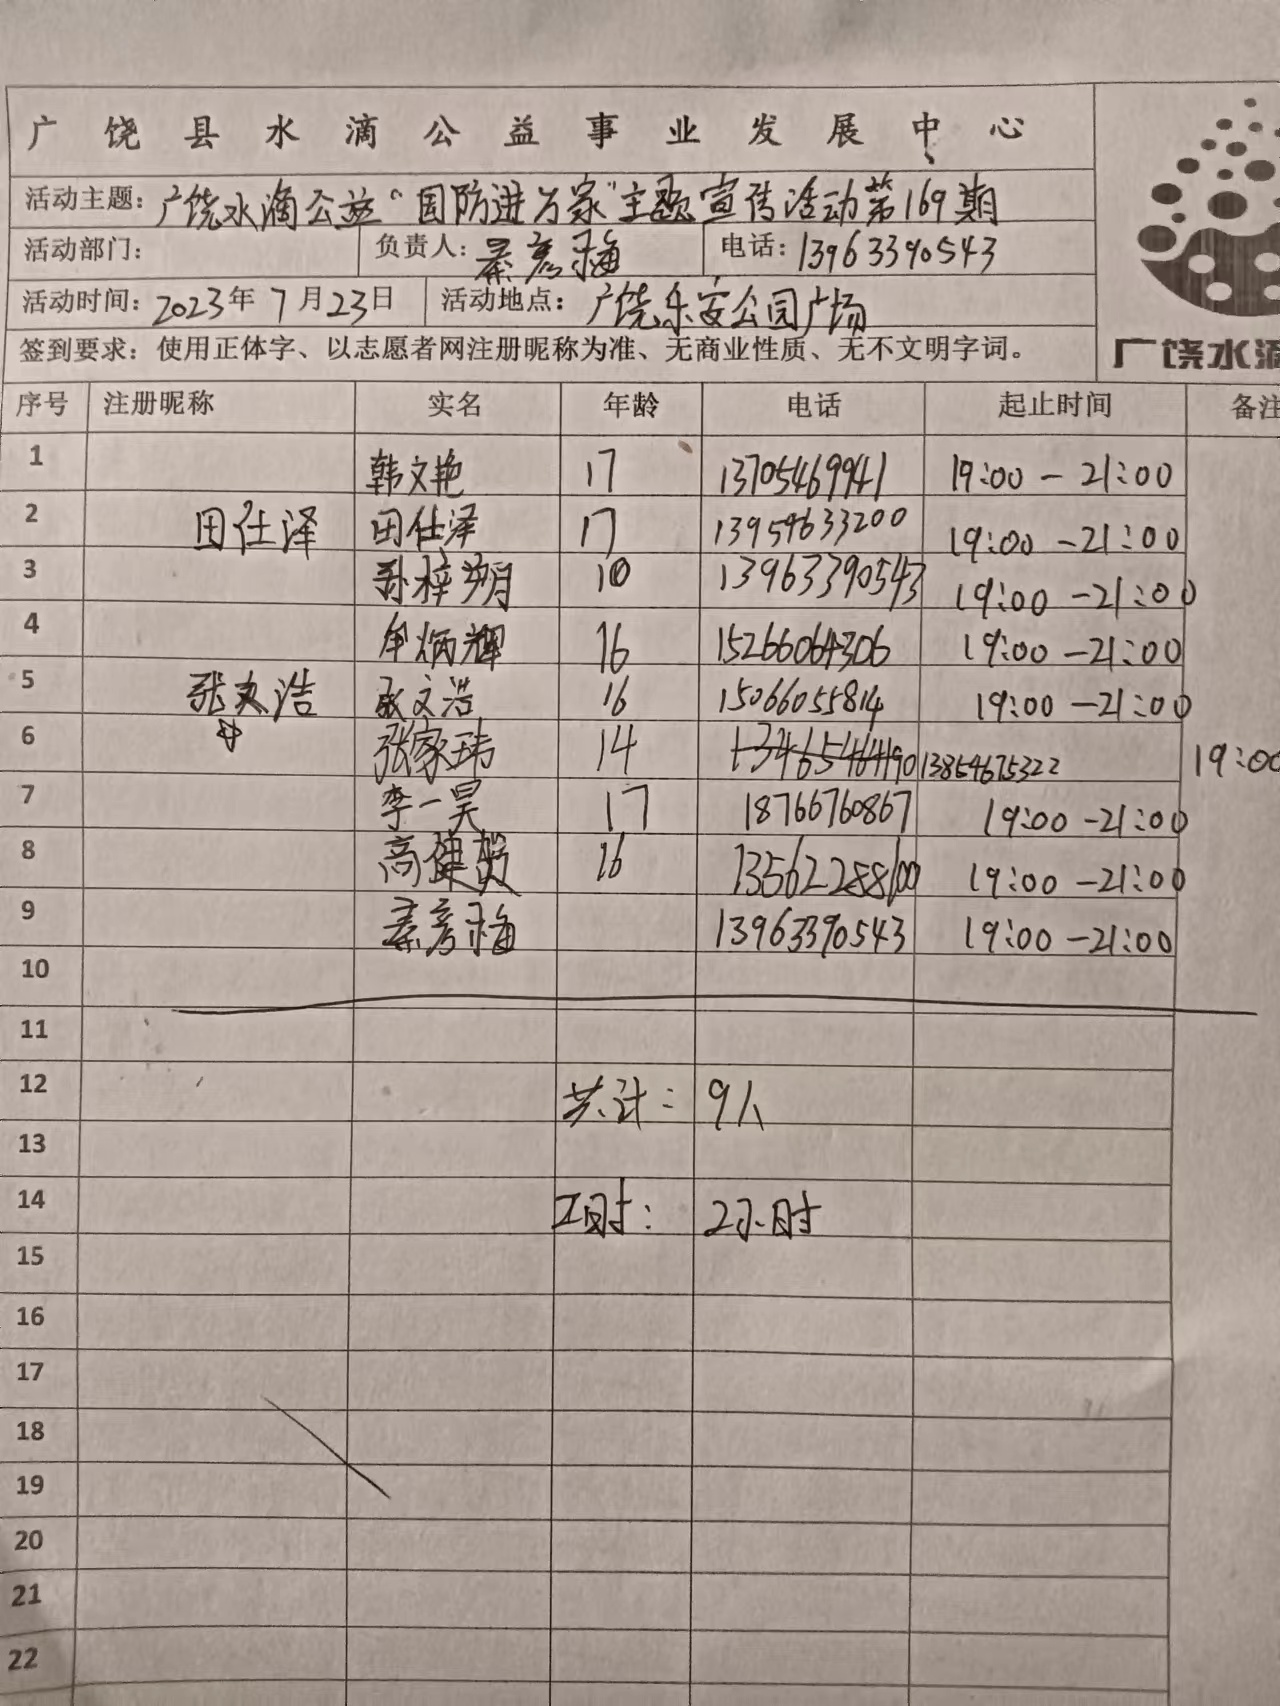 广饶县水滴公益事业发展中心
活动主题：广饶水滴公益“国防进万家”主题宣传活动第169期
活动部门： 负责人：秦彦海 电话：13963390543
活动时间：2023年7月23日 活动地点：广饶乐安公园广场
签到要求：使用正体字、以志愿者网注册昵称为准、无商业性质、无不文明字词。
广饶水滴
序号 注册昵称 实名 年龄 电话 起止时间 备注
1 韩文艳 17 13705469941 19:00-21:00
2 田仕泽 田仕泽 17 13959633200 19:00-21:00
3 孙梓翔 10 13963390543 19:00-21:00
4 炳辉 16 15266064306 19:00-21:00
5 张文浩 文浩 16 15066055814 19:00-21:00
6 张家玮 14 13854675322 19:00
7 李一昊 17 18766760867 19:00-21:00
8 高健 16 13562288600 19:00-21:00
9 秦彦海 13963390543 19:00-21:00
10
11
12 共计：9人
13
14 工时：2小时
15
16
17
18
19
20
21
22